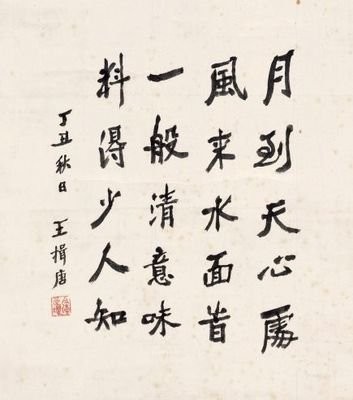 月到天心處
風来水面旹
一般清意味
料得少人知
丁丑秋日 王揖唐